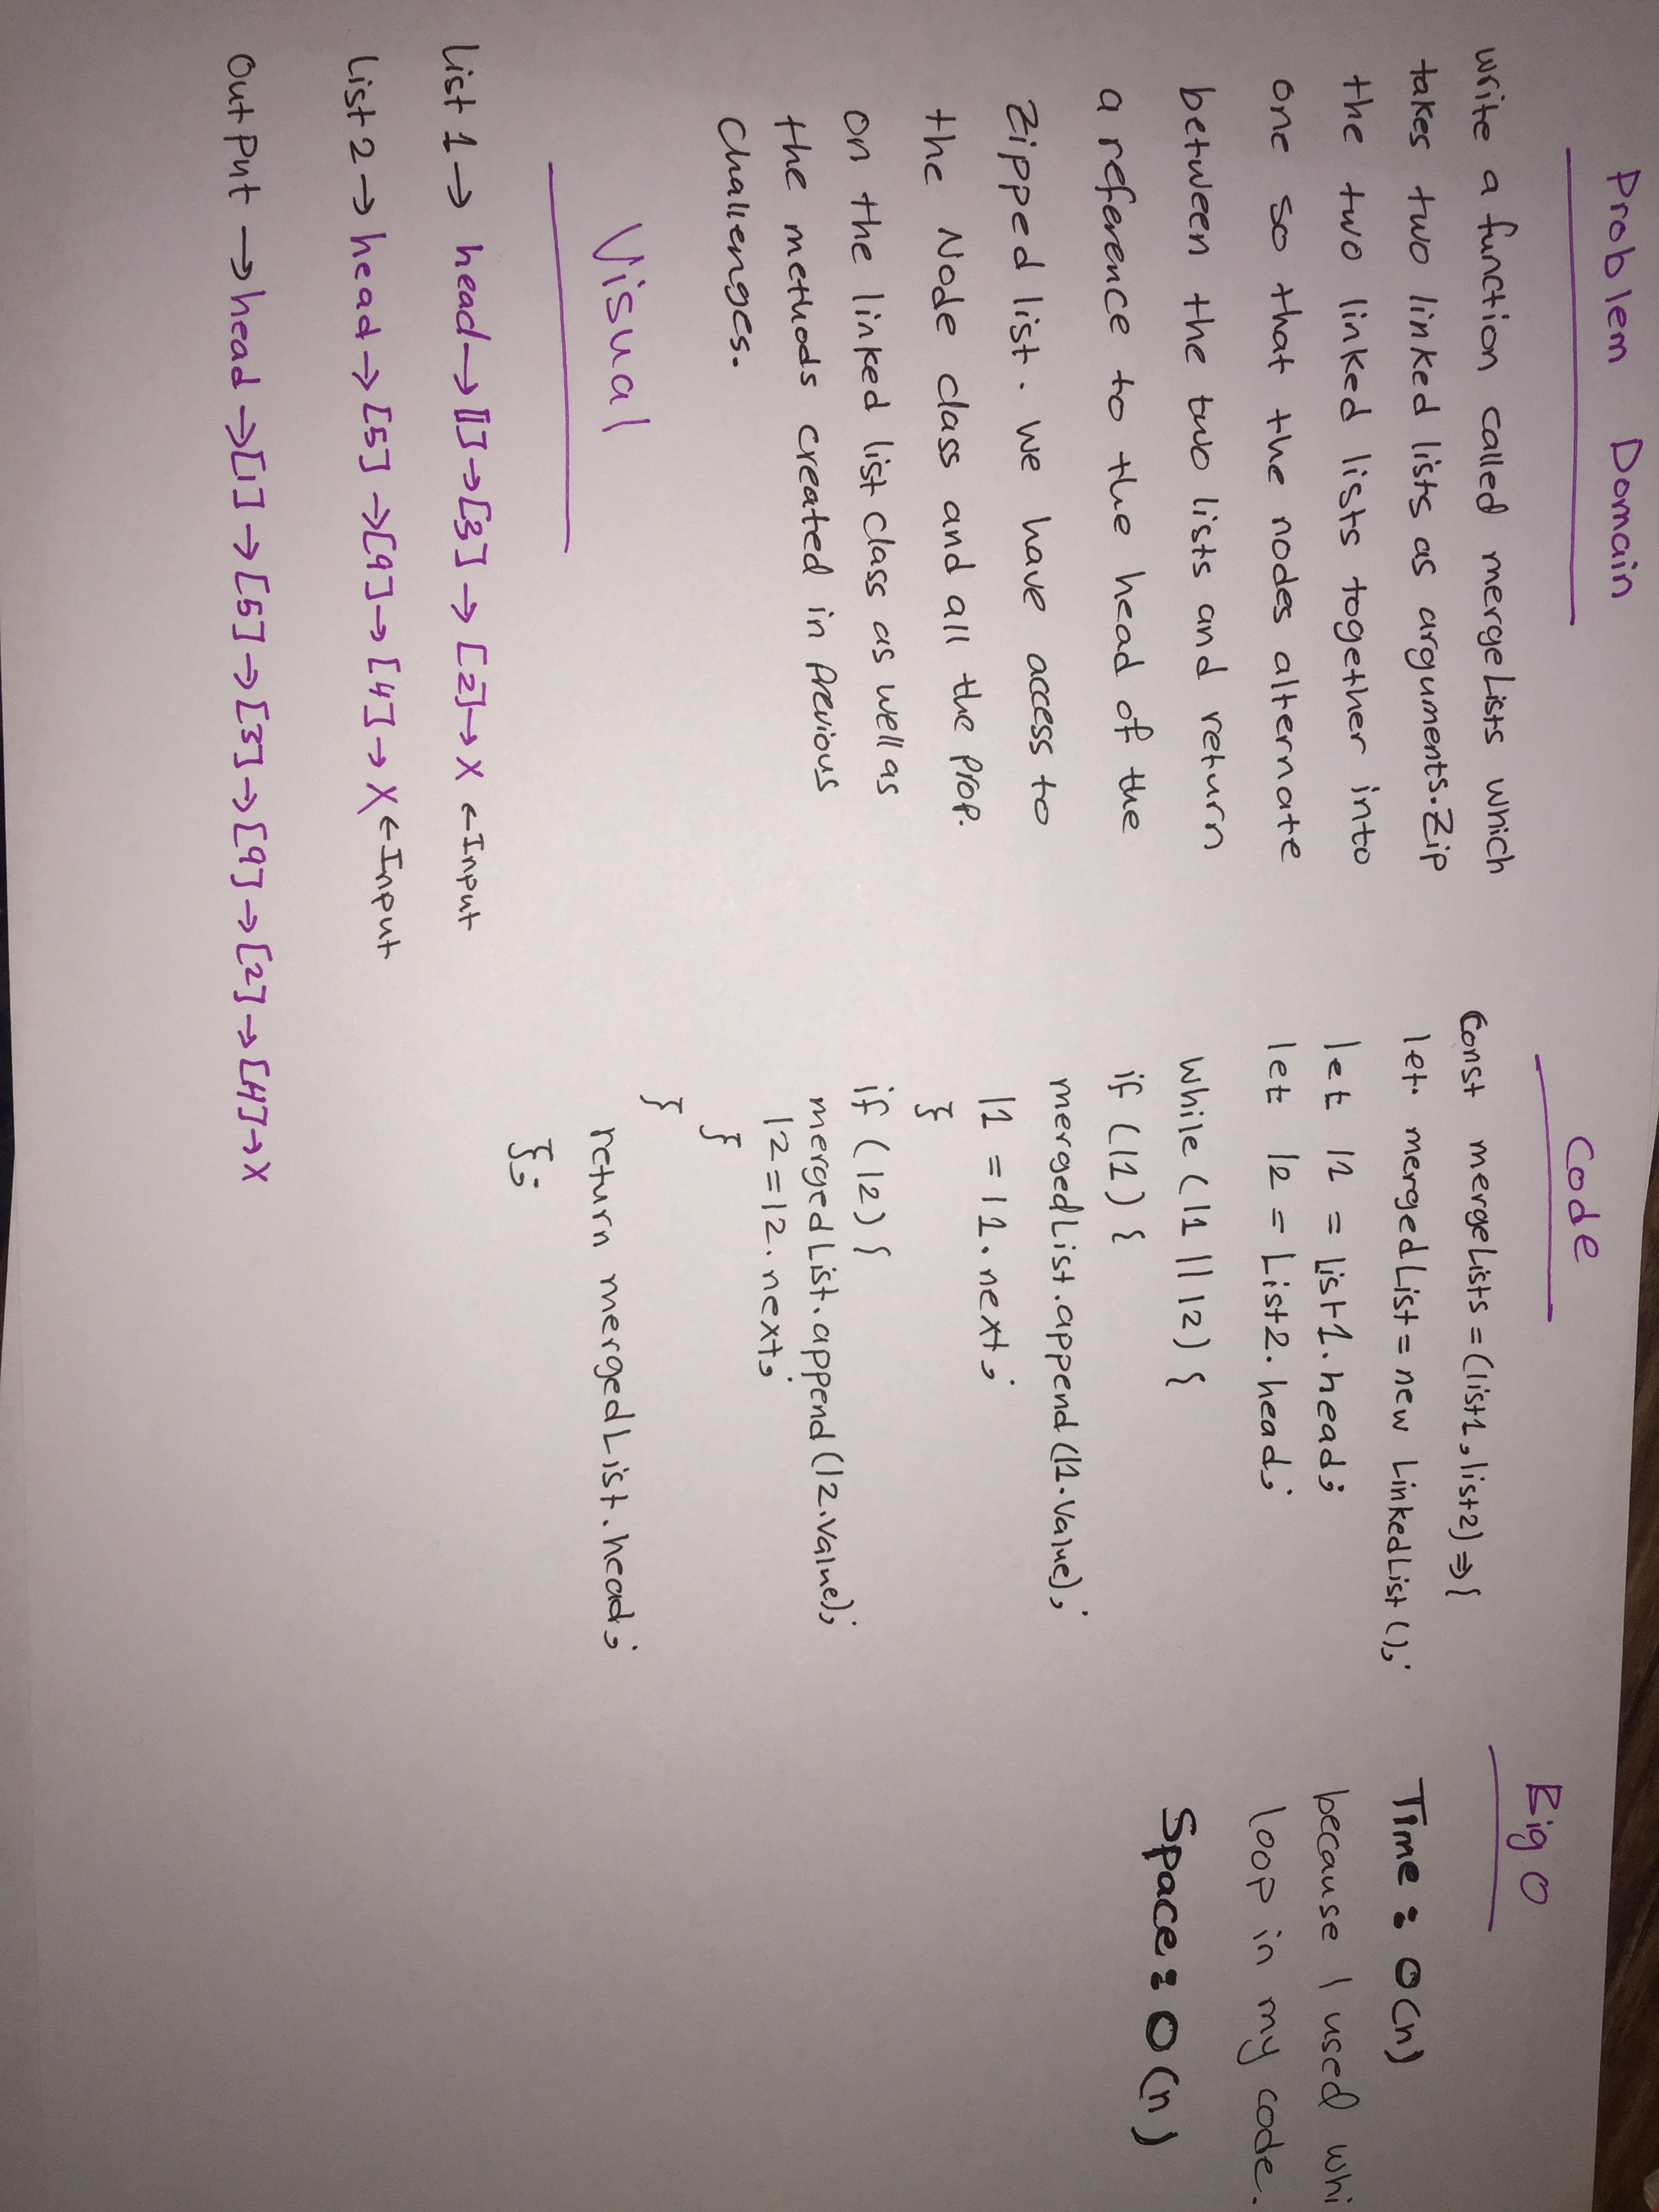 Problem Domain
write a function called mergeLists which
takes two linked lists as arguments. Zip
the two linked lists together into
one so that the nodes alternate
between the two lists and return
a reference to the head of the
Zipped list. we have access to
the Node class and all the prop.
on the linked list class as well as
the methods created in previous
challenges.
Visual
List 1 → head → [1] → [3] → [2] → X ← Input
List 2 → head → [5] → [9] → [4] → X ← Input
OutPut → head → [1] → [5] → [3] → [9] → [2] → [4] → X
Code
Const mergeLists = (list1, list2) => {
let mergedList = new LinkedList ();
let l1 = list1.head;
let l2 = List2.head;
while (l1 || l2) {
if (l1) {
mergedList.append (l1.value);
l1 = l1.next;
}
if (l2) {
mergedList.append (l2.value);
l2 = l2.next;
}
}
return mergedList.head;
};
Big O
Time: O(n)
because I used whi
loop in my code.
Space: O(n)